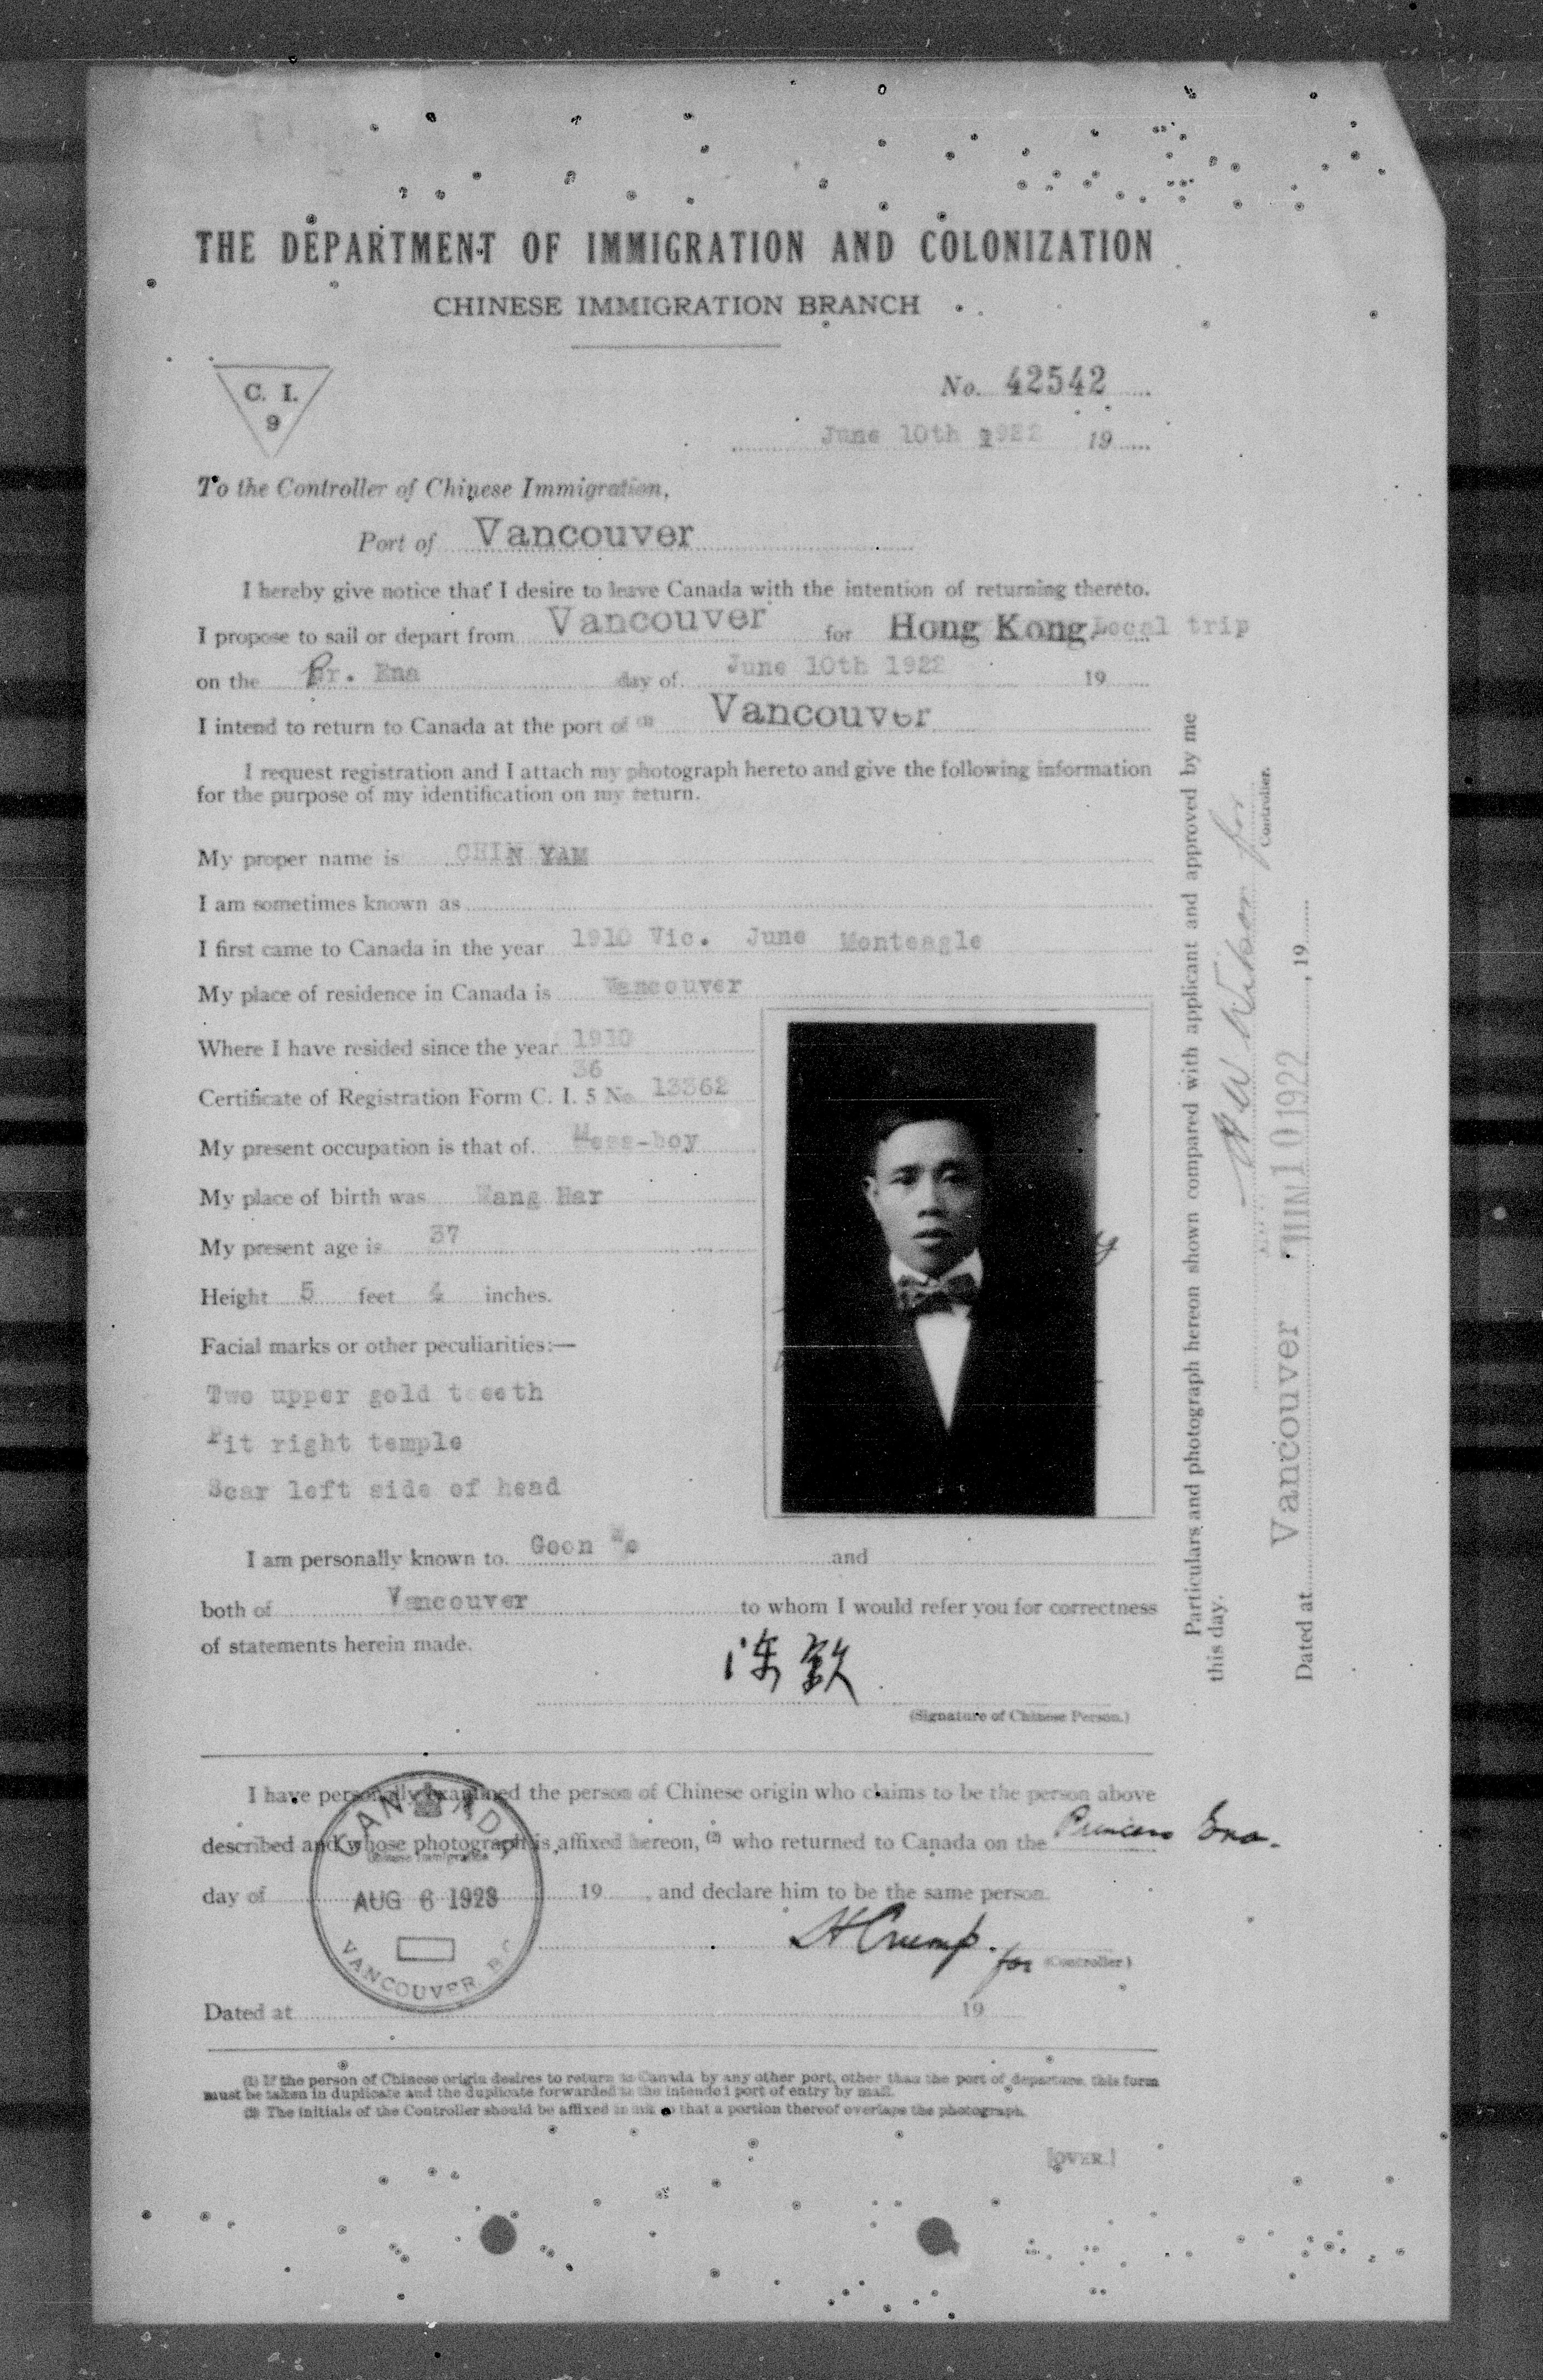 THE DEPARTMENT OF IMMIGRATION AND COLONIZATION
CHINESE IMMIGRATION BRANCH
C. I.
9
No. 42542
June 10th 1922 19
To the Controller of Chinese Immigration,
Port of Vancouver
I hereby give notice that I desire to leave Canada with the intention of returning thereto.
I propose to sail or depart from Vancouver for Hong Kong. Local trip
on the Pr. Ena day of June 10th 1922 19
I intend to return to Canada at the port of (1) Vancouver
I request registration and I attach my photograph hereto and give the following information
for the purpose of my identification on my return.
My proper name is CHIN YAM
I am sometimes known as
I first came to Canada in the year 1910 Vic. June Monteagle
My place of residence in Canada is Vancouver
Where I have resided since the year 1910
36
Certificate of Registration Form C. I. 5 No. 13362
My present occupation is that of Mess-boy
My place of birth was Wang Har
My present age is 37
Height 5 feet 4 inches.
Facial marks or other peculiarities:—
Two upper gold teeth
Pit right temple
Scar left side of head
I am personally known to Goon and
both of Vancouver to whom I would refer you for correctness
of statements herein made.
陈欽
(Signature of Chinese Person.)
I have personally examined the person of Chinese origin who claims to be the person above
described and whose photograph is affixed hereon, (2) who returned to Canada on the Princess Ena.
day of 19 , and declare him to be the same person.
CANADA
Chinese Immigration
AUG 6 1923
VANCOUVER B.C.
H Crump. for (Controller)
Dated at 19
(1) If the person of Chinese origin desires to return to Canada by any other port, other than the port of departure, this form
must be taken in duplicate and the duplicate forwarded to the intended port of entry by mail.
(2) The initials of the Controller should be affixed in ink so that a portion thereof overlaps the photograph.
[OVER.]
Particulars and photograph hereon shown compared with applicant and approved by me
this day.
for
Controller.
JUN 10 1922
Dated at Vancouver , 19